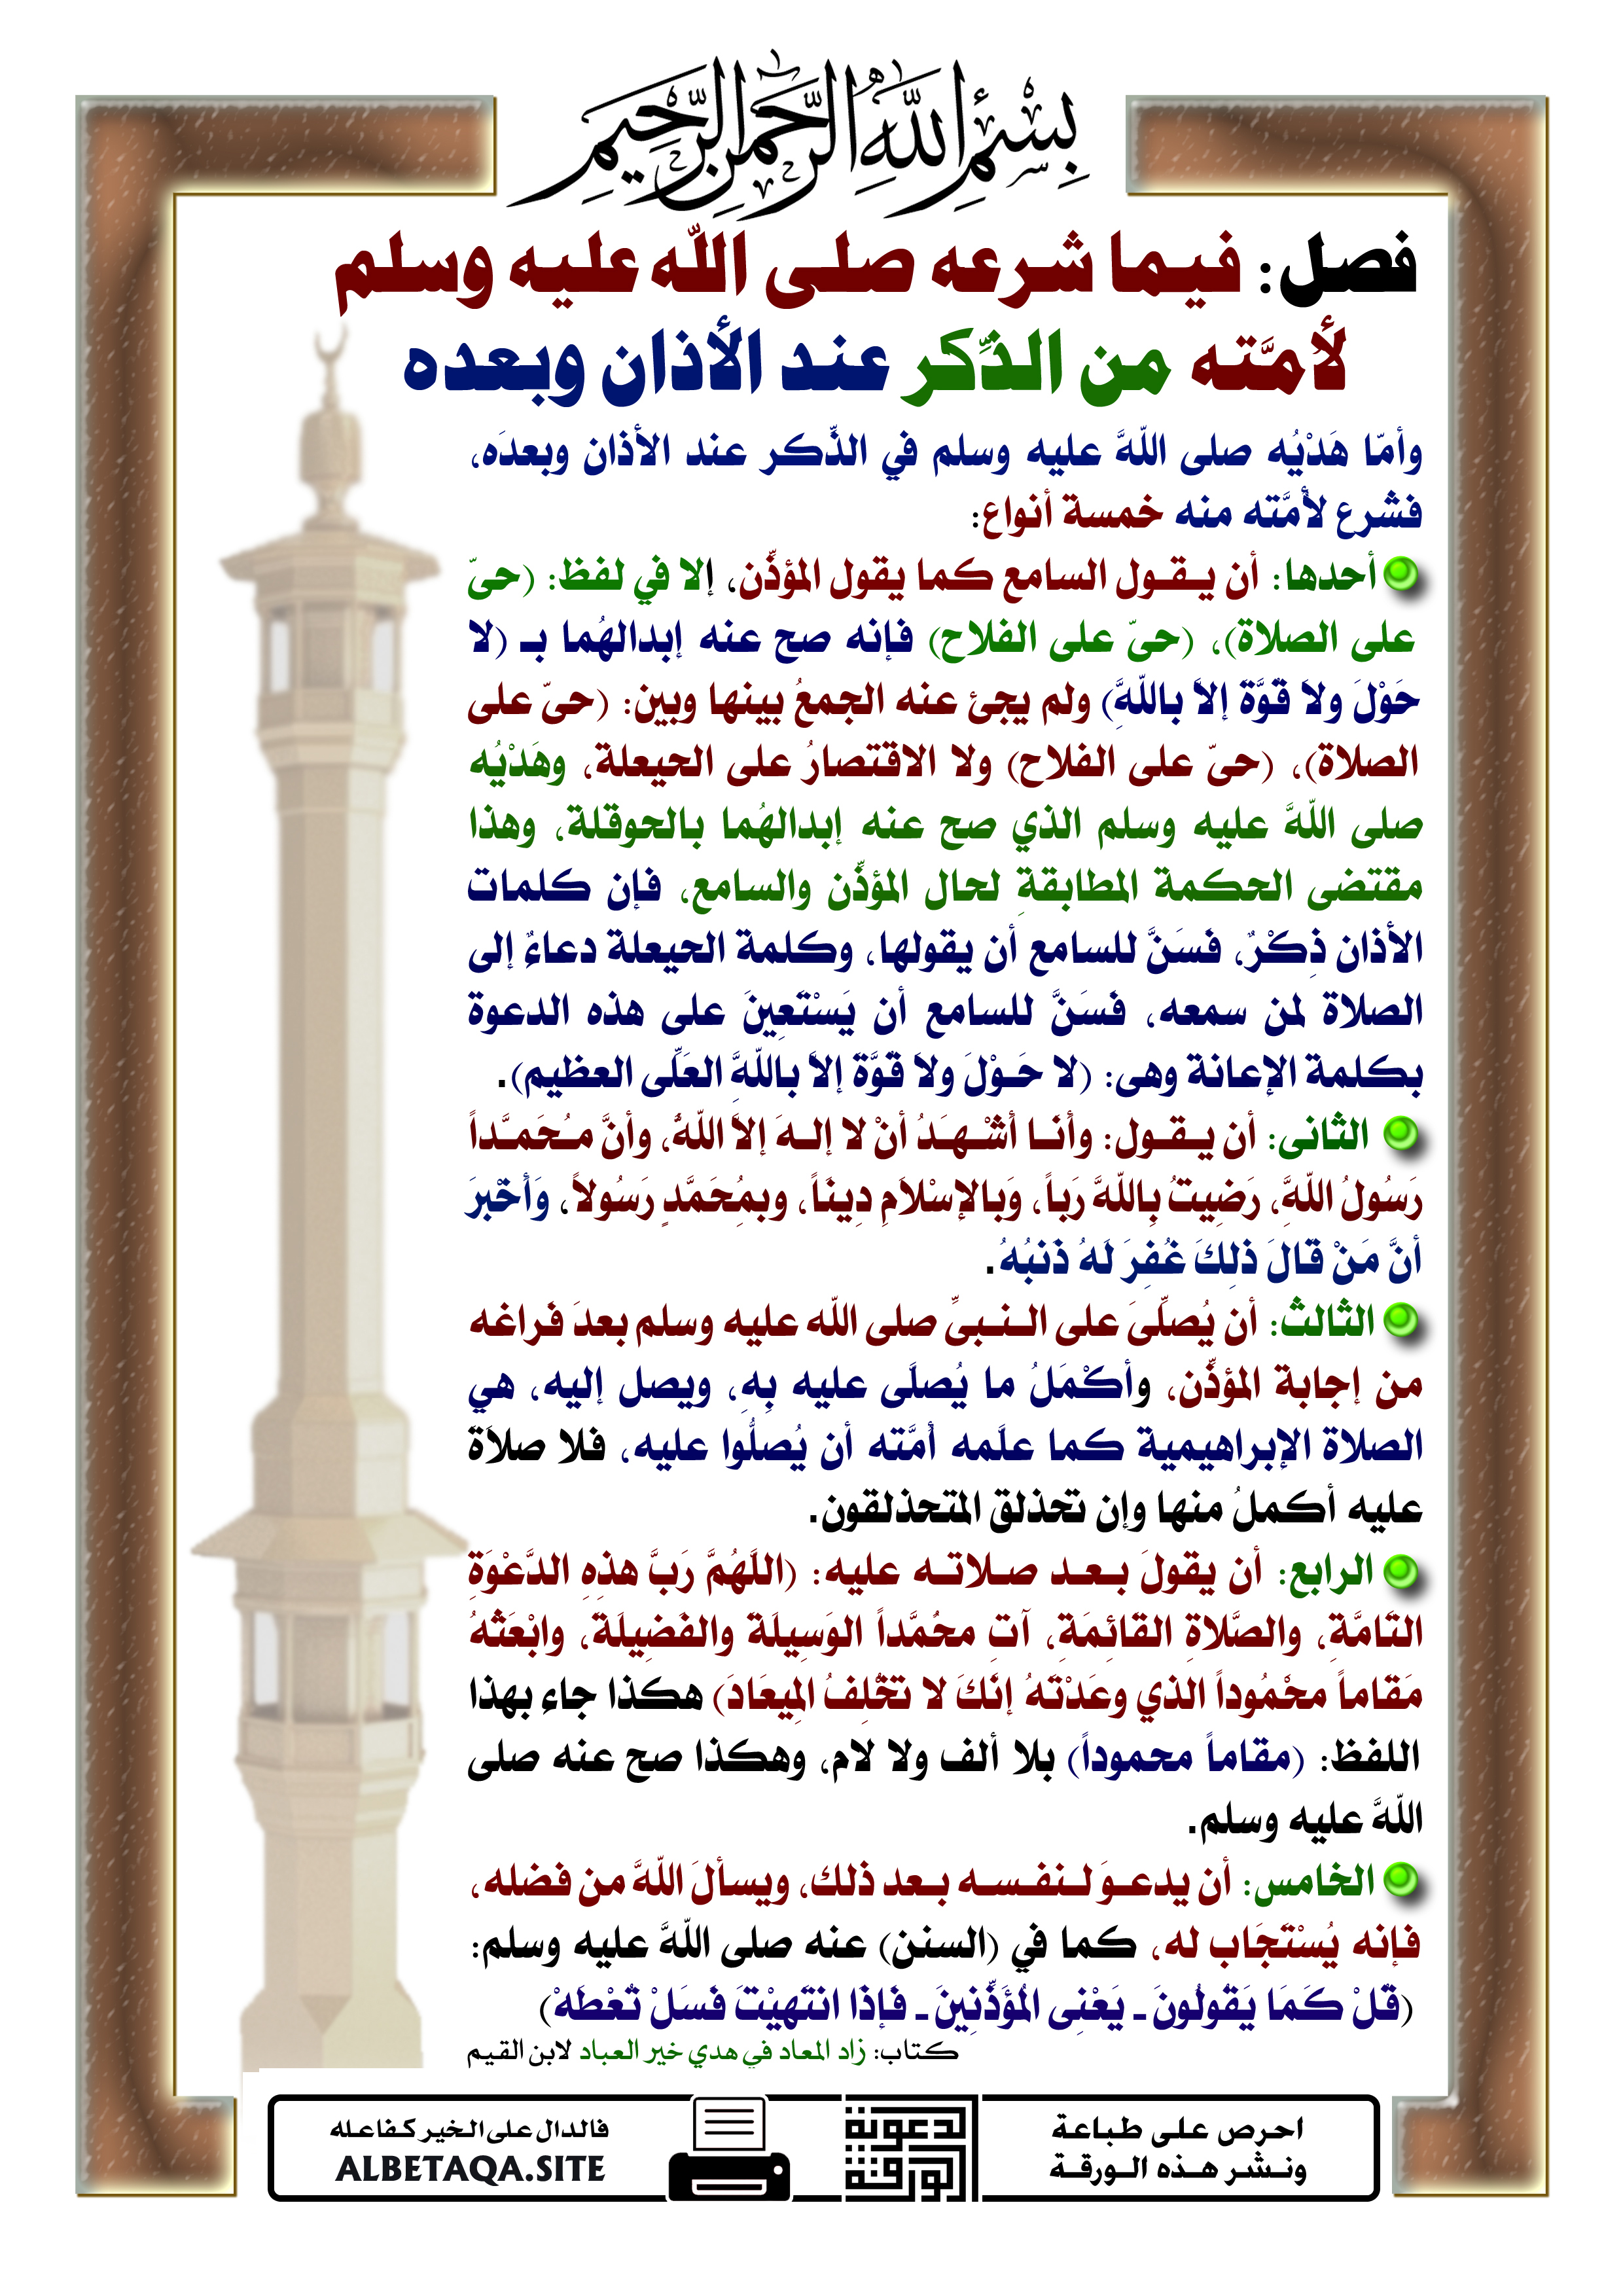 بِسْمِ اللَّهِ الرَّحْمَنِ الرَّحِيمِ
فصل: فيما شرعه صلى الله عليه وسلم
لأمَّته من الذِّكر عند الأذان وبعده
وأمّا هَدْيُه صلى اللهَّ عليه وسلم في الذِّكر عند الأذان وبعدَه،
فشرع لأمَّته منه خمسة أنواع:
أحدها: أن يـقـول السامع كما يقول المؤذِّن، إلا في لفظ: (حىّ
على الصلاة)، (حىّ على الفلاح) فإنه صح عنه إبدالهُما بـ (لا
حَوْلَ ولاَ قوَّة إلاَ باللهَّ) ولم يجئ عنه الجمعُ بينها وبين: (حىّ على
الصلاة)، (حىّ على الفلاح) ولا الاقتصارُ على الحيعلة، وهَدْيُه
صلى اللهَّ عليه وسلم الذي صح عنه إبدالهُما بالحوقلة، وهذا
مقتضى الحكمة المطابقةِ لحال المؤذِّن والسامع، فإن كلمات
الأذان ذِكْرٌ، فسَنَّ للسامع أن يقولها، وكلمة الحيعلة دعاءٌ إلى
الصلاة لمن سمعه، فسَنَّ للسامع أن يَسْتَعِينَ على هذه الدعوة
بكلمة الإعانة وهى: (لا حَـوْلَ ولاَ قوَّة إلاَ باللهَّ العَلِّى العظيم).
الثانى: أن يـقـول: وأَنَـا أَشْـهَـدُ أنْ لا إلـهَ إلاَّ اللّهُ، وأنَّ مـُحَمـَّداً
رَسُولُ اللهَّ، رَضِيتُ بِاللهَّ رَباً، وَبِالإسْلاَمِ دِينَاً، وبمُحَمَّدٍ رَسُولاً، وَأَخْبرَ
أنَّ مَنْ قالَ ذلِكَ غُفِرَ لَهُ ذَنبُهُ.
الثالث: أن يُصلِّىَ على الـنـبىِّ صلى اللّه عليه وسلم بعدَ فراغه
من إجابة المؤذِّن، وأكْمَلُ ما يُصلَّى عليه بِهِ، ويصل إليه، هي
الصلاة الإبراهيمية كما علَّمه أمَّته أن يُصلُّوا عليه، فلا صلاَة
عليه أكملُ منها وإن تحذلق المتحذلقون.
الرابع: أن يقولَ بـعـد صـلاتـه عليه: (اللَّهُمَّ رَبَّ هذِهِ الدَّعْوَةِ
التَامَّةِ، والصَّلاةِ القَائِمَةِ، آتِ محُمَّداً الوَسِيلَة والفَضِيلَة، وابْعَثهُ
مَقَاماً محْمُوداً الذي وعَدْتَهُ إنَكَ لا تخُلِفُ المِيعَادَ) هكذا جاء بهذا
اللفظ: (مقاماً محموداً) بلا ألف ولا لام، وهكذا صح عنه صلى
اللهَّ عليه وسلم.
الخامس: أن يدعـوَ لـنفـسـه بـعد ذلك، ويسألَ اللهَّ من فضله،
فإنه يُسْتَجَاب له، كما في (السنن) عنه صلى اللهَّ عليه وسلم:
(قُلْ كَمَا يَقُولُونَ ـ يَعْنِى المُؤَذِّنِينَ ـ فَإذا انتَهيْتَ فسَلْ تُعْطَهْ)
كتاب: زاد المعاد في هدي خير العباد لابن القيم
احرص على طباعة
ونـشـر هـذه الـورقـة
الدعوية
الورقة
فالدال على الخير كفاعله
ALBETAQA.SITE